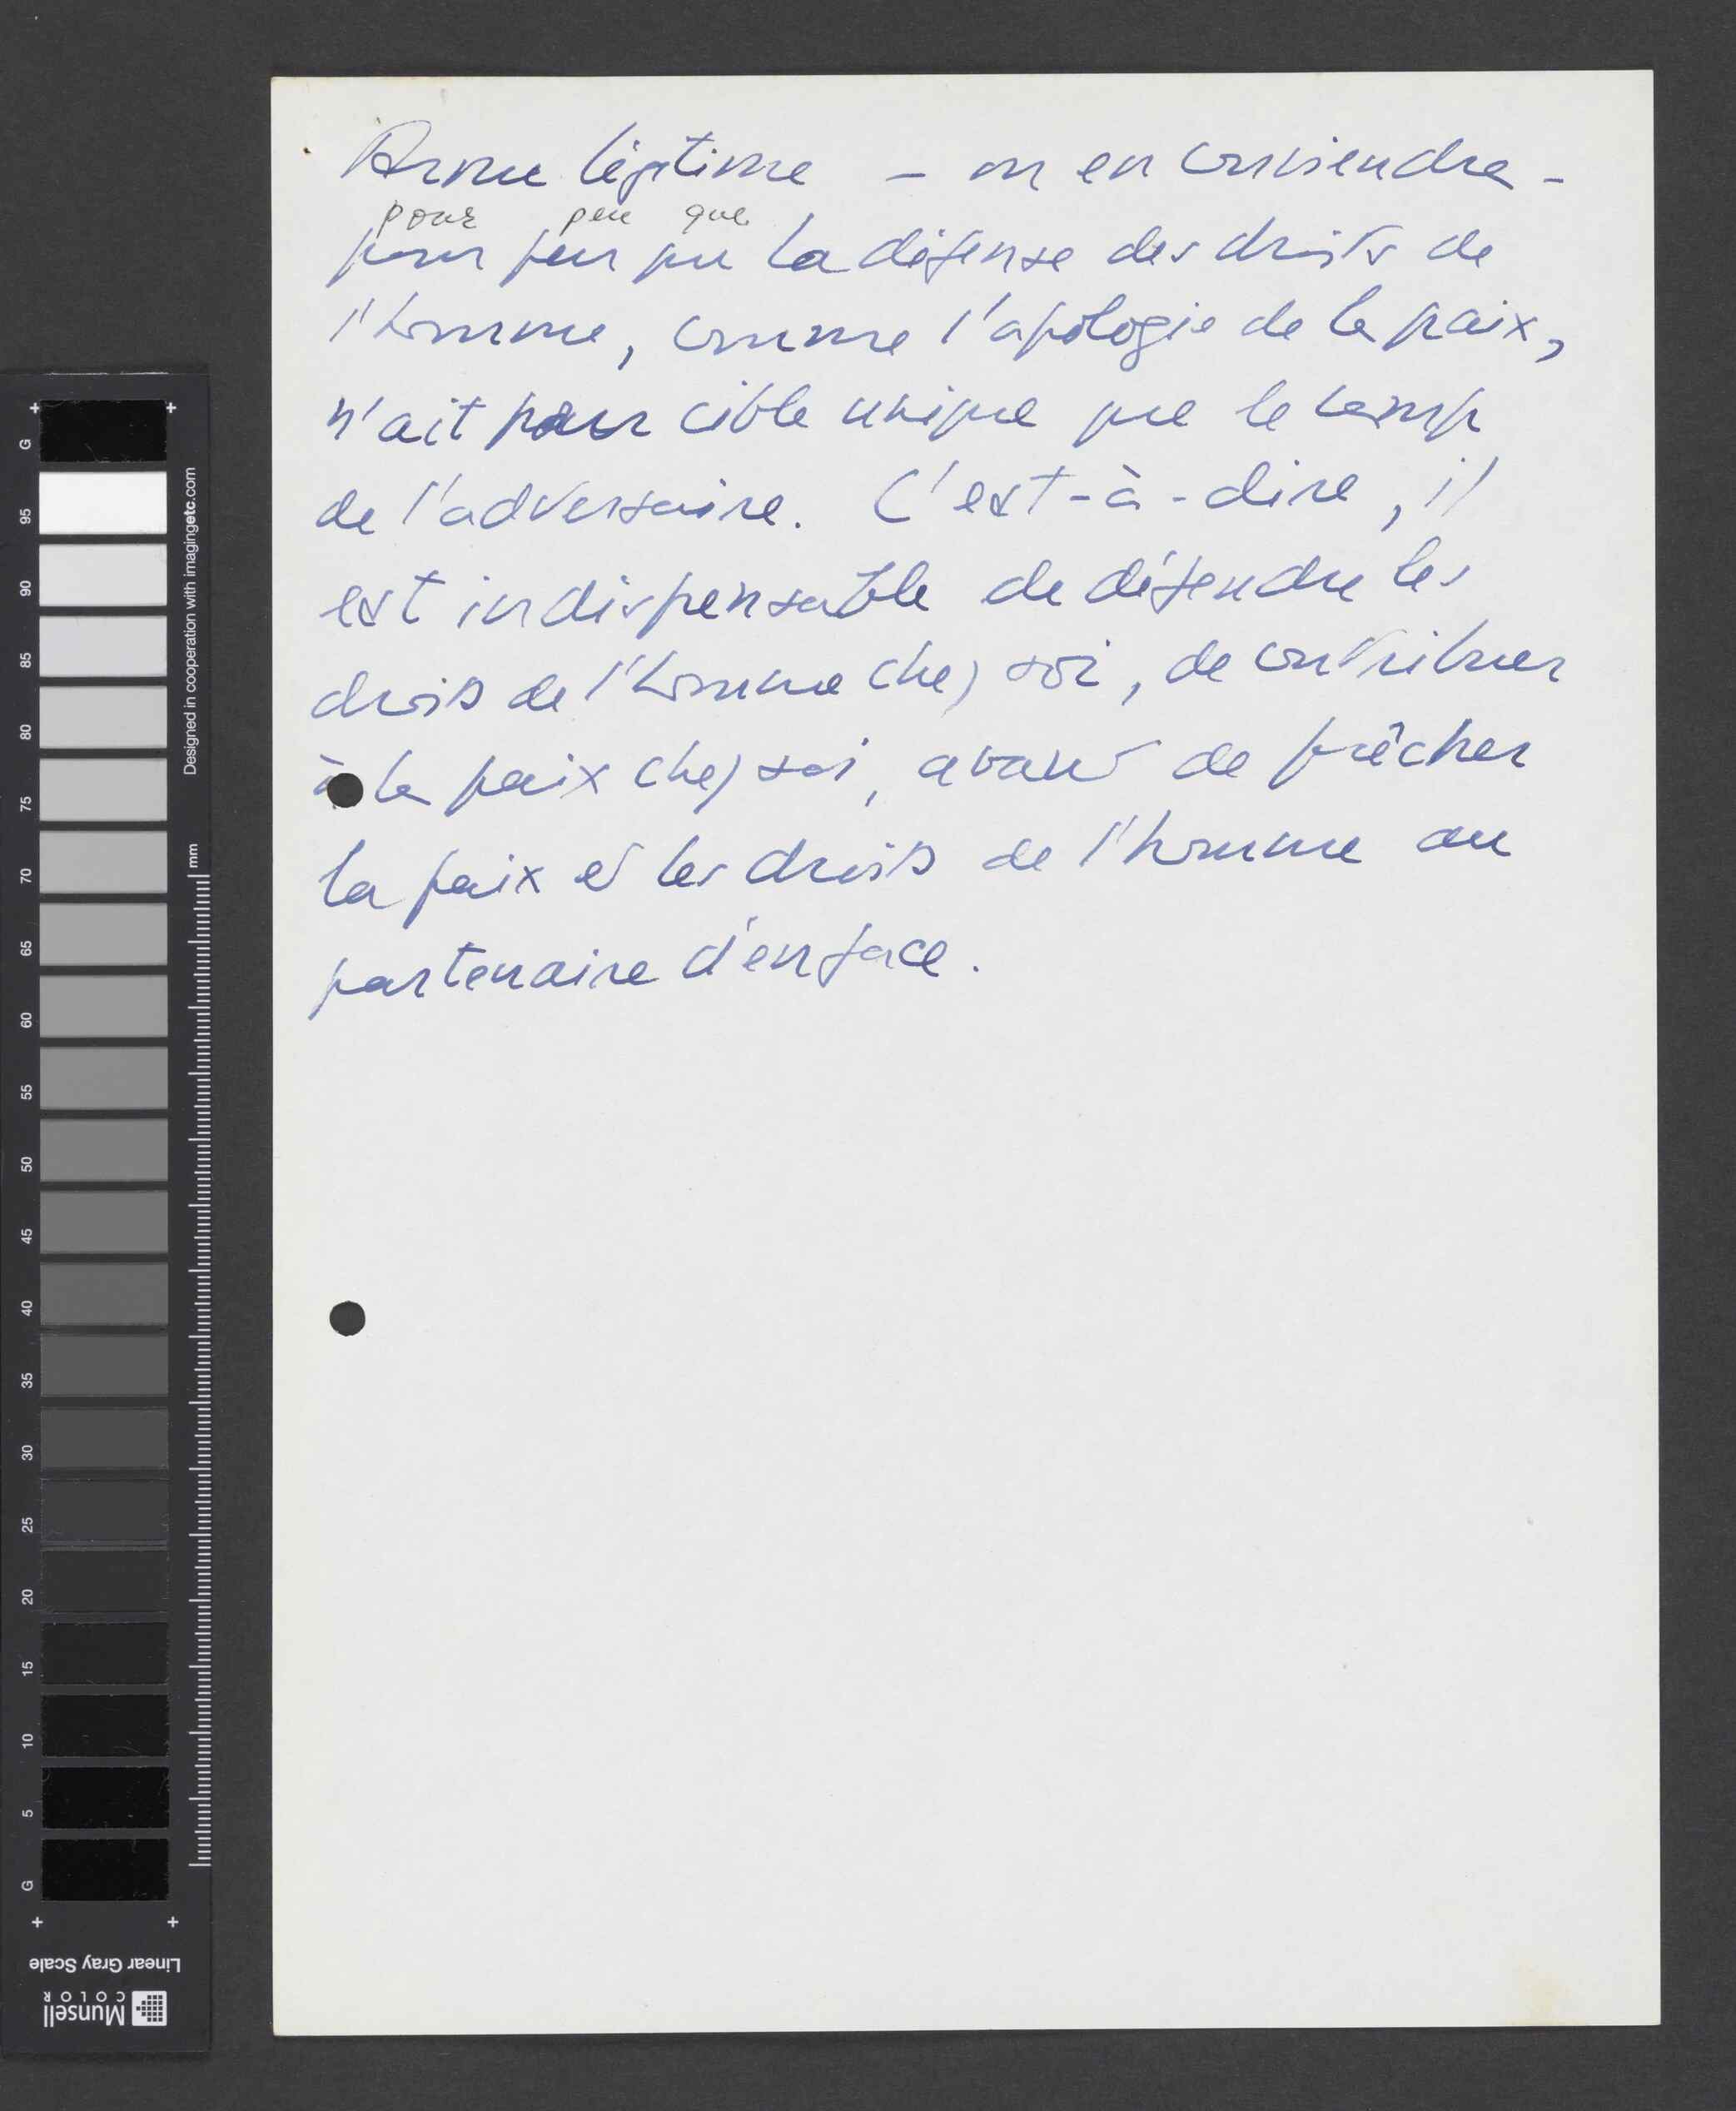 Arme légitime - on en conviendra -
pour peu que
pour peu que la défense des droits de
l'homme, comme l'apologie de la paix,
n'ait pour cible unique que le camp
de l'adversaire. C'est-à-dire, il
est indispensable de défendre les
droits de l'homme chez soi, de contribuer
à la paix chez soi, avant de prêcher
la paix et les droits de l'homme au
partenaire d'en face.
G
95
90
85
80
75
70
65
60
55
50
45
40
35
30
25
20
15
10
5
G
Designed in cooperation with imagingetc.com
mm
Linear Gray Scale
Munsell
COLOR